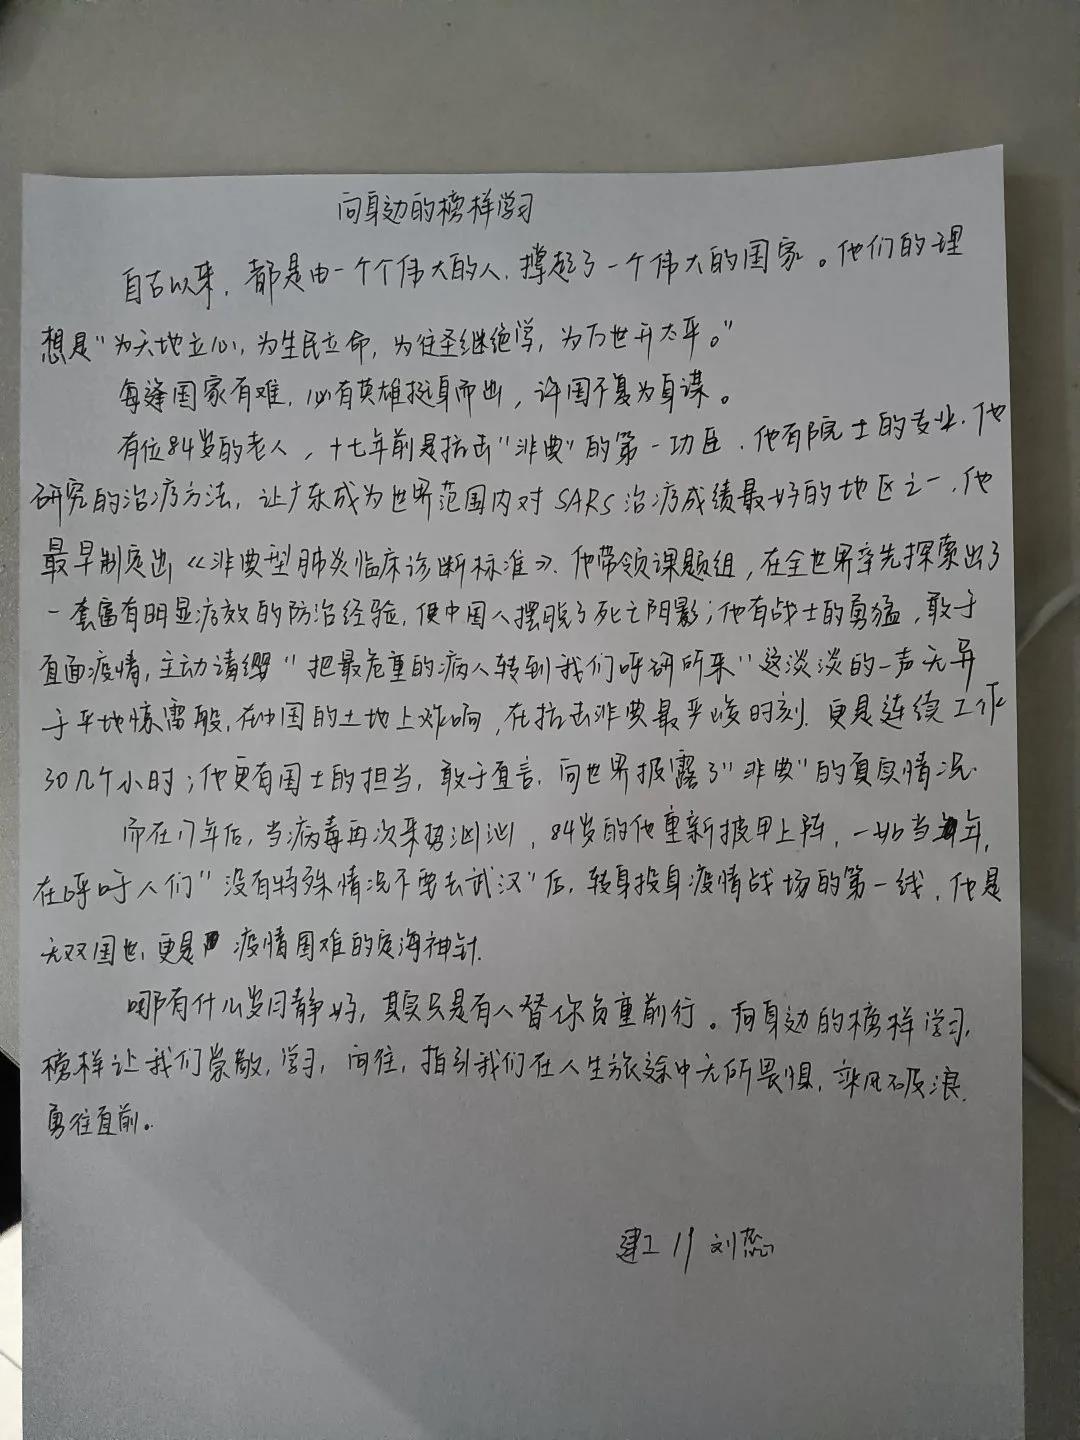 向身边的榜样学习
自古以来，都是由一个个伟大的人，撑起了一个伟大的国家。他们的理
想是"为天地立心，为生民立命，为往圣继绝学，为万世开太平。"
每逢国家有难，必有英雄挺身而出，许国不复为身谋。
有位84岁的老人，十七年前是抗击"非典"的第一功臣，他有院士的专业，他
研究的治疗方法，让广东成为世界范围内对SARS治疗成绩最好的地区之一，他
最早制定出《非典型肺炎临床诊断标准》，他带领课题组，在全世界率先探索出了
一套富有明显疗效的防治经验，使中国人摆脱了死亡阴影；他有战士的勇猛，敢于
直面疫情，主动请缨"把最危重的病人转到我们呼研所来"这淡淡的一声无异
于平地惊雷般，在中国的土地上炸响，在抗击非典最严峻时刻，更是连续工作
30几个小时；他更有国士的担当，敢于直言，向世界报露了"非典"的真实情况.
而在17年后，当病毒再次来势汹汹，84岁的他重新披甲上阵，一如当年，
在呼吁人们"没有特殊情况不要去武汉"后，转身投身疫情战场的第一线，他是
无双国世，更是疫情国难的定海神针.
哪有什么岁月静好，其实只是有人替你负重前行。向身边的榜样学习，
榜样让我们崇敬，学习，向往，指引我们在人生旅途中无所畏惧，乘风破浪，
勇往直前。
建工 刘蕊